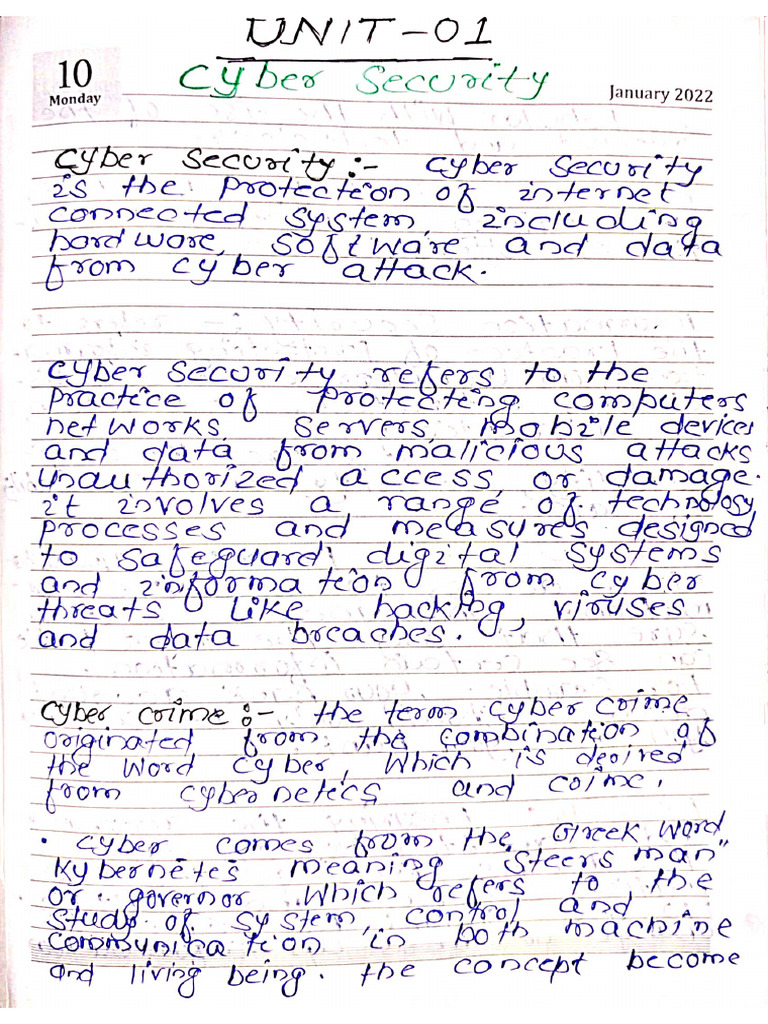 UNIT-01
10
Monday
Cyber Security
January 2022
Cyber Security :- Cyber Security
is the protection of internet
connected system, including
hardware, software and data
from cyber attack.
Cyber Security refers to the
practice of protecting computers
networks, servers, mobile devices
and data from malicious attacks
unauthorized access, or damage.
it involves a range of technology,
processes and measures designed
to safeguard digital systems
and information from cyber
threats like hacking, viruses
and data breaches.
Cyber crime :- the term cyber crime
originated from the combination of
the word cyber, which is desired
from cybernetics and crime.
• Cyber comes from the Greek word
Kybernētēs meaning "steers man"
or governor which refers to the
study of system, control and
communication in both machine
and living being. the concept become